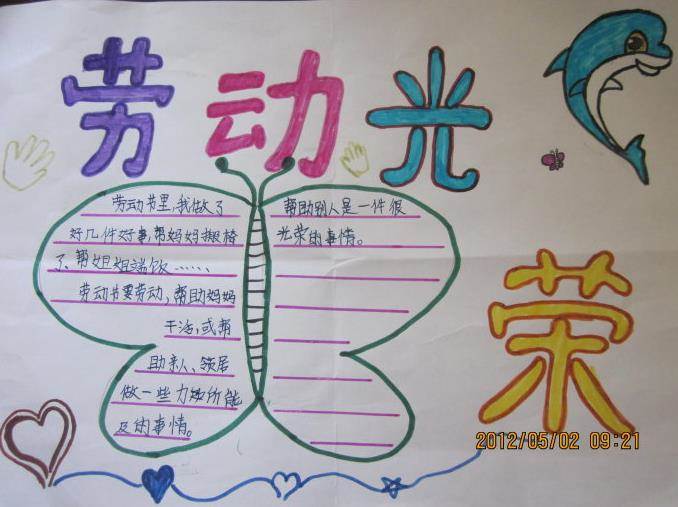 劳动光
荣
劳动节里,我做了
好几件好事,帮妈妈搬椅
子、帮姐姐端饭……
劳动节要劳动,帮助妈妈
干活,或帮
助亲人、领居
做一些力如所能
及的事情。
帮助别人是一件很
光荣的事情。
2012/05/02 09:21